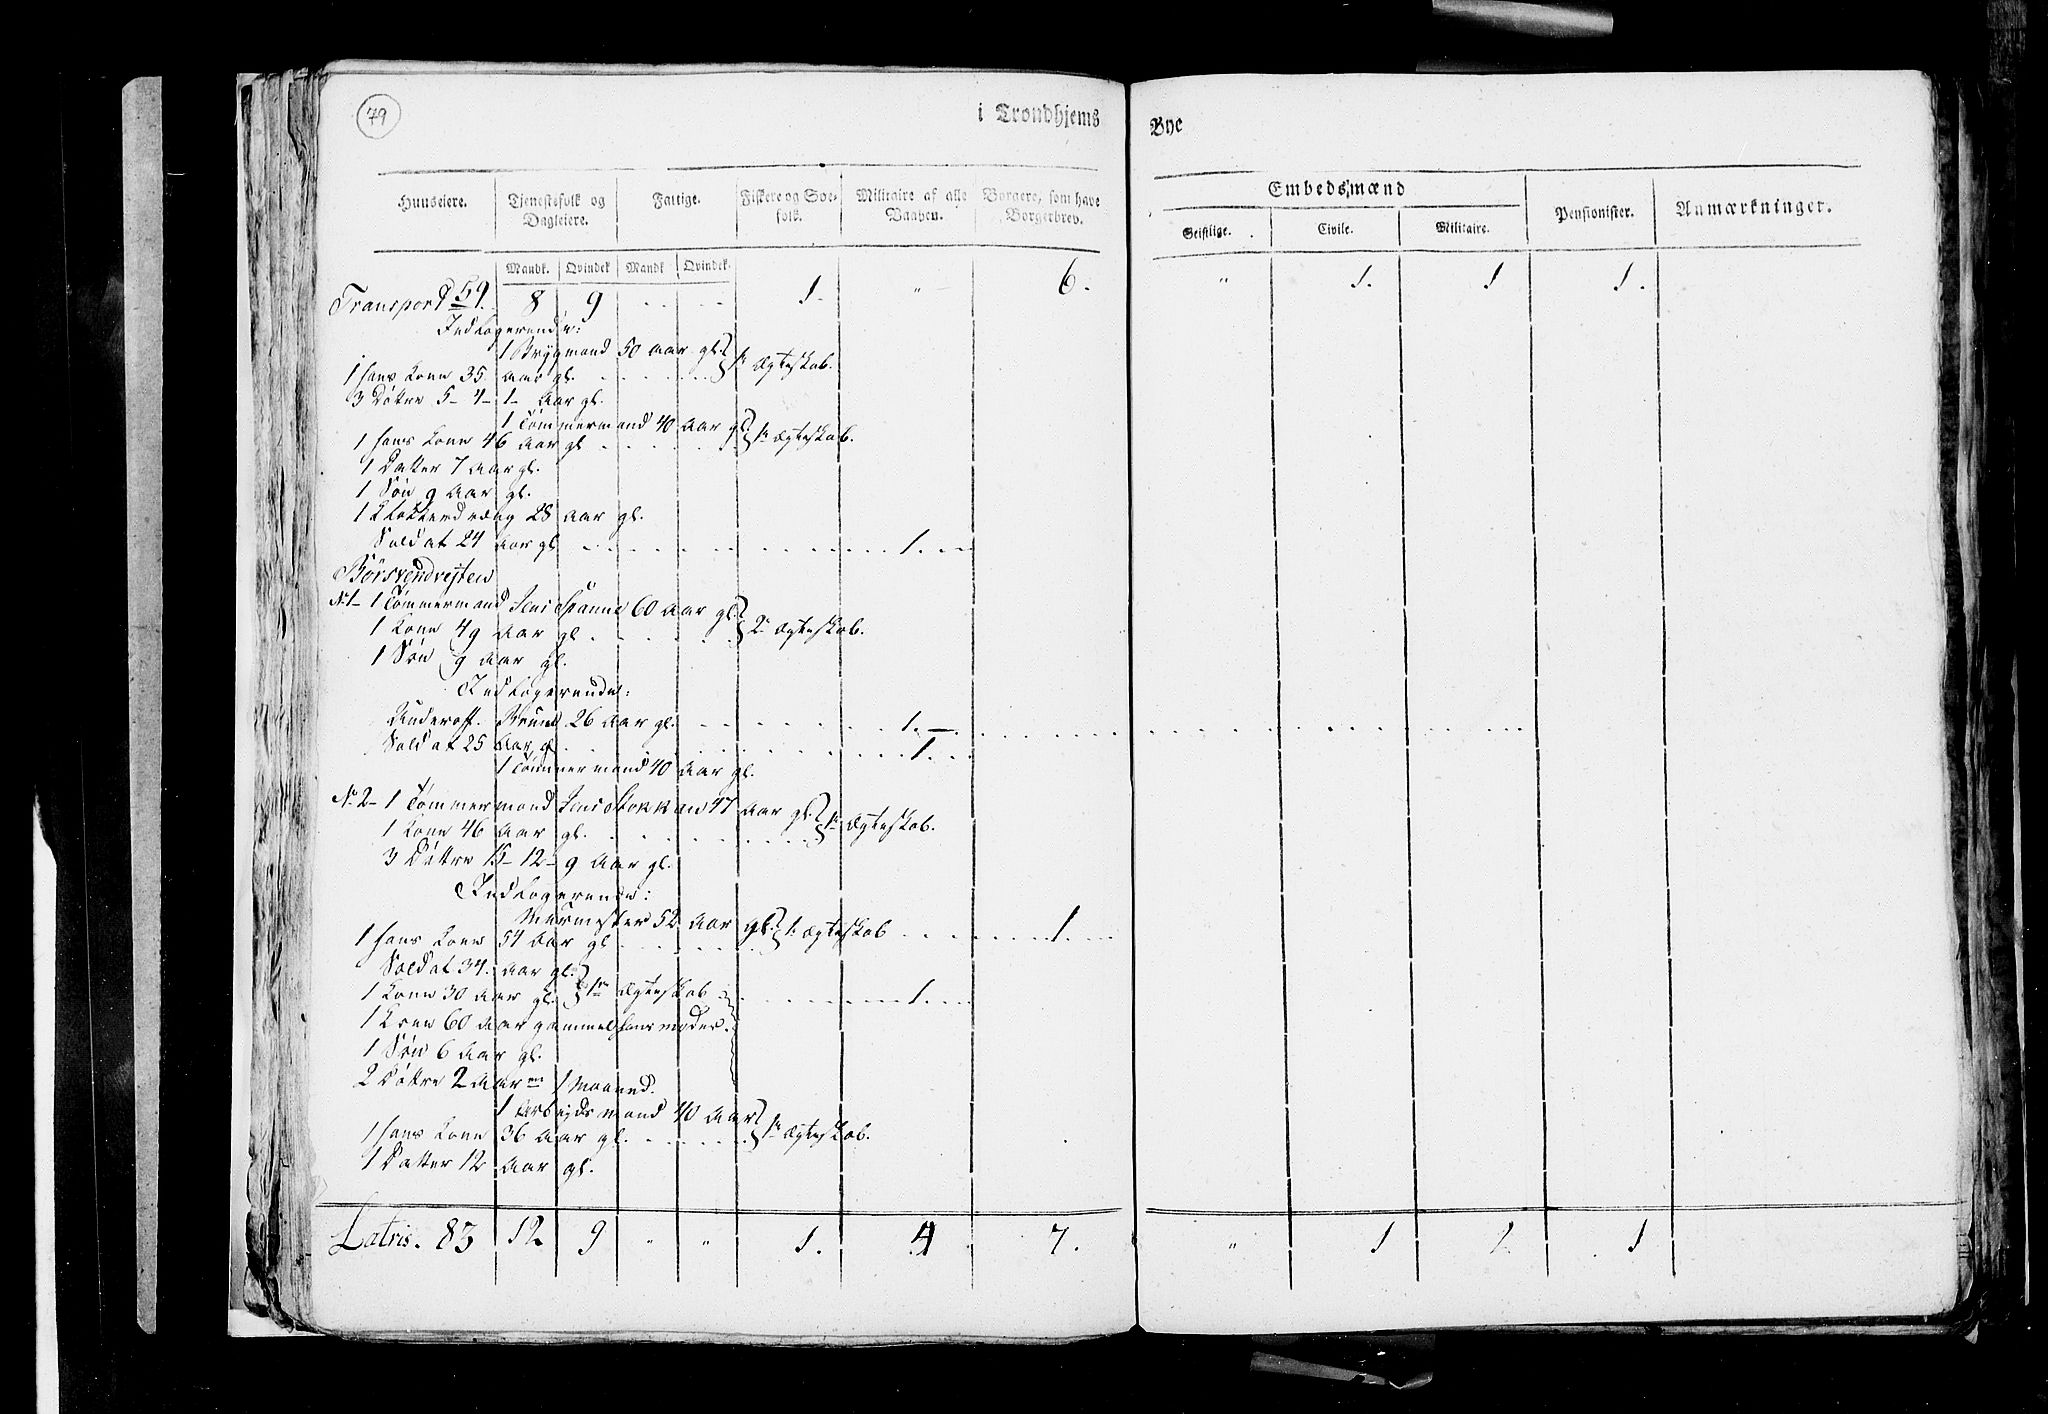 79
i Trondhjems Bye
Huuseiere. Tjenestefolk og Dagleiere. Fattige. Fiskere og Søefolk. Militaire af alle Vaaben. Borgere, som have Borgerbrev. Embedsmænd Pensionister. Anmærkninger.
Geistlige. Civile. Militaire.
Mandk. Qvindek Mandk Qvindek.
Transport 59. 8 9 1. " 6. " 1. 1 1.
Indlogerende:
1 Brygmand 50 Aar gl.
1 hans Kone 35 Aar gl. 1te Ægteskab.
3 Døttre 5-4-1- Aar gl.
1 Tømmermand 40 Aar gl.
1 hans Kone 46 Aar gl 1te Ægteskab.
1 Datter 7 Aar gl.
1 Søn 9 Aar gl.
1 Klokkerdræng 28 Aar gl.
Soldat 24 Aar gl 1.
No 1- 1 Tømmermand Jens 60 Aar gl.
1 Kone 49 Aar gl. 2t Ægteskab.
1 Søn 9 Aar gl.
Indlogerende:
Underoff. 26 Aar gl. 1.
Soldat 25 Aar gl 1.
1 Tømmermand 40 Aar gl.
No 2- 1 Tømmermand Jens Stokkan 47 Aar gl.
1 Kone 46 Aar gl. 1te Ægteskab.
3 Døttre 15-12-9 Aar gl.
Indlogerende:
Murmester 52 Aar gl.
1 hans Kone 54 Aar gl 1t Ægteskab 1.
Soldat 34. Aar gl.
1 Kone 30 Aar gl. 1te Ægteskab 1.
1 Kone 60 Aar gammel hans moder.
1 Søn 6 Aar gl.
2 Døttre 2 Aar 1 Maaned.
1 Arbeidsmand 40 Aar
1 hans Kone 36 Aar gl. 1te Ægteskab.
1 Datter 12 Aar gl.
Latris. 83 12 9 " " 1. 4 7. " 1 1. 1